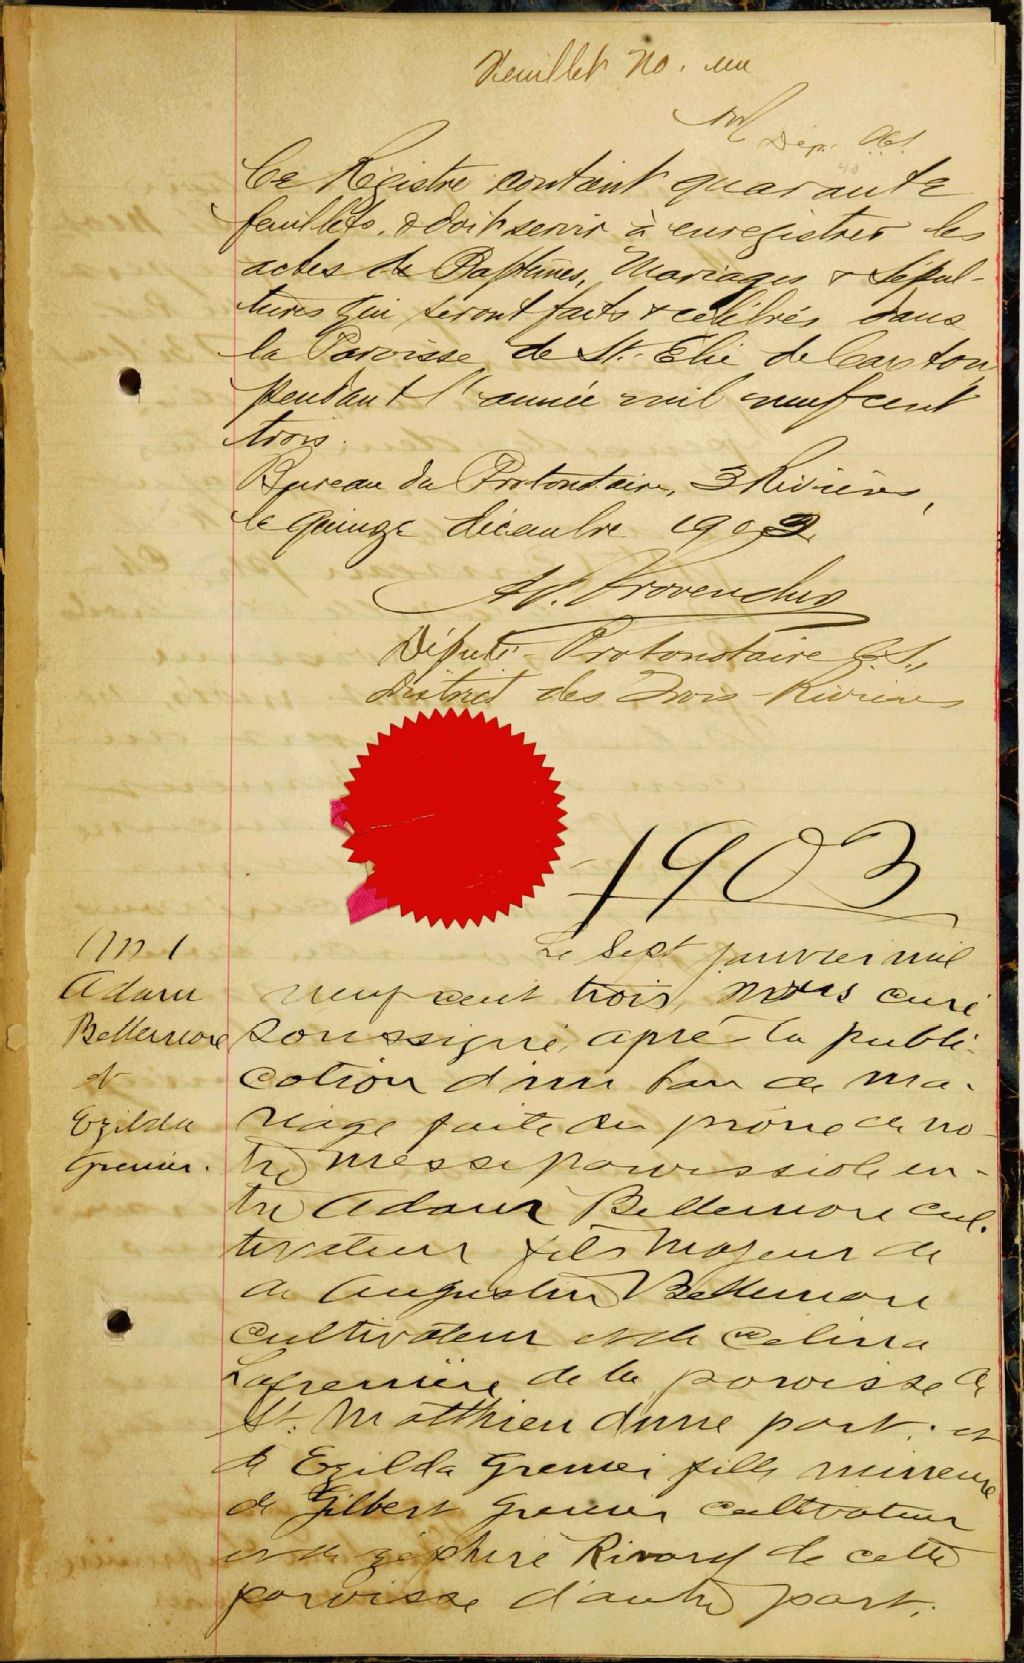 Feuillet No. un
Dép.
Ce Régistre contient quarante
feuillets, & doit servir à enregistrer les
actes de Baptêmes, Mariages & Sépul-
tures qui seront faits & célébrés dans
la Paroisse de St. Elie de Caxton,
pendant l'année mil neuf cent
trois.
Bureau du Protonotaire, 3 Rivières,
le quinze décembre 1902
Provencher
Député-Protonotaire C.S.,
District des Trois-Rivières
1903
M 1
Adam
Bellemare
et
Ezilda
Grenier.
Le sept janvier mil
neuf cent trois, nous curé
soussigné, apré la publi-
cation d'un ban de ma-
riage faite au prône de no-
tre messe paroissiale en-
tre Adam Bellemare cul-
tivateur fils majeur de
de Augustin Bellemare
cultivateur et de Celina
Lafrenière de la paroisse de
St. Matthieu d'une part; et
de Ezilda Grenier fille mineure
de Gilbert Grenier cultivateur
et de Zéphiré Rivard de cette
paroisse d'autre part;